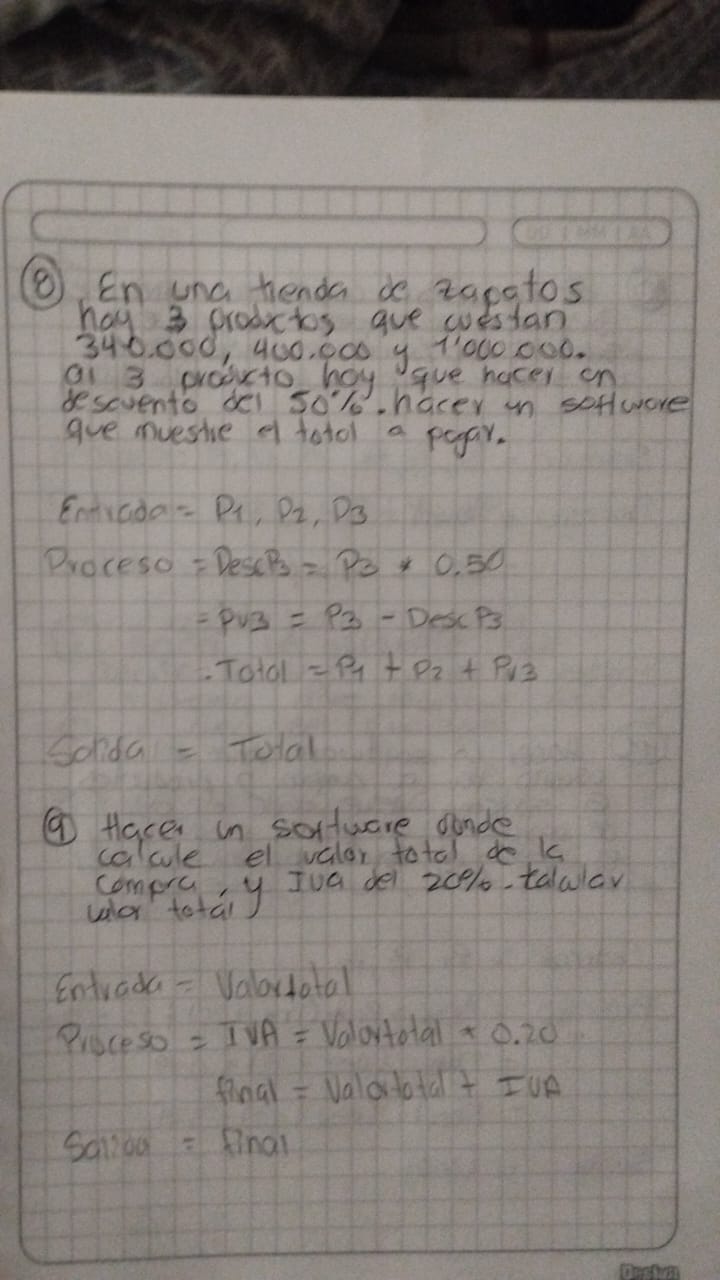 DD | MM | AA
⑧ En una tienda de zapatos
hay 3 productos que cuestan
340.000, 400.000 y 1'000.000.
al 3 producto hay que hacer un
descuento del 50%. hacer un software
que muestre el total a pagar.
Entrada = P1, P2, P3
Proceso = DescP3 = P3 * 0.50
= PV3 = P3 - DescP3
. Total = P1 + P2 + PV3
Salida = Total
⑨ Hacer un software donde
calcule el valor total de la
compra, y IVA del 20%. talular
valor total
Entrada = Valortotal
Proceso = IVA = Valortotal * 0.20
final = Valortotal + IVA
Salida = final